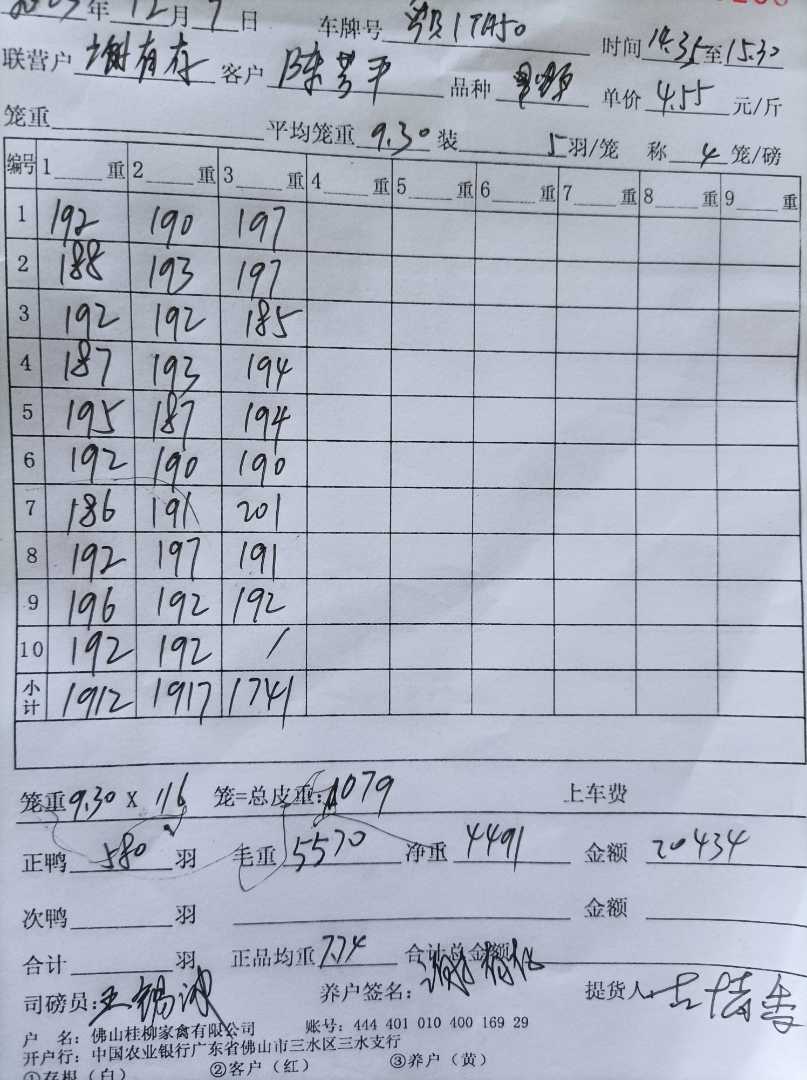 年 12月7日 车牌号 时间 14.35至15.30
联营户 谢有存 客户 陈 平 品种 单价 4.55 元/斤
笼重 平均笼重 9.30 装 5羽/笼 称 4 笼/磅
编号 1 重 2 重 3 重 4 重 5 重 6 重 7 重 8 重 9 重
1 192 190 197
2 188 193 197
3 192 192 185
4 187 193 194
5 195 187 194
6 192 190 190
7 186 191 201
8 192 197 191
9 196 192 192
10 192 192 /
小计 1912 1917 1741
笼重 9.30 X 116 笼=总皮重: 1079 上车费
正鸭 580 羽 毛重 5570 净重 4491 金额 20434
次鸭 羽 金额
合计 羽 正品均重 7.74 合计总金额
司磅员: 王锡 养户签名: 提货人:
户 名: 佛山桂柳家禽有限公司 账号: 444 401 010 400 169 29
开户行: 中国农业银行广东省佛山市三水区三水支行
①存根（白） ②客户（红） ③养户（黄）